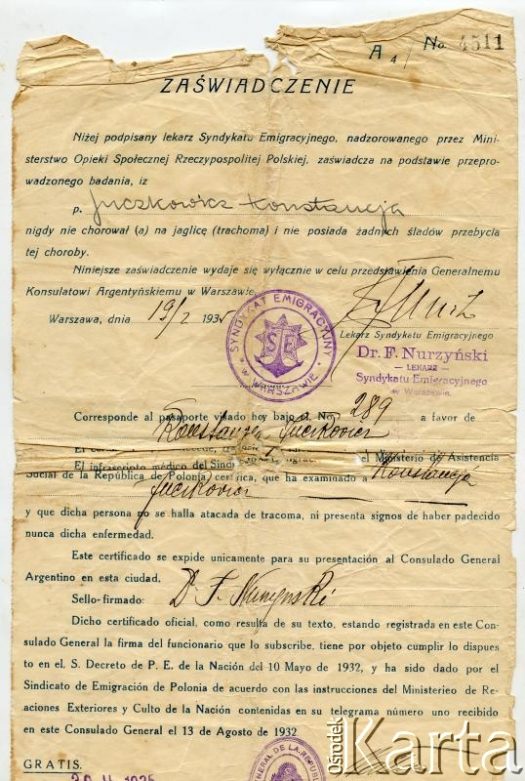 A 4 No. 4511
ZAŚWIADCZENIE
Niżej podpisany lekarz Syndykatu Emigracyjnego, nadzorowanego przez Mini-
sterstwo Opieki Społecznej Rzeczypospolitej Polskiej, zaświadcza na podstawie przepro-
wadzonego badania, iz
p. Juczkowicz Konstancja
nigdy nie chorował (a) na jaglicę (trachoma) i nie posiada żadnych śladów przebycia
tej choroby.
Niniejsze zaświadczenie wydaje się wyłącznie w celu przedstawienia Generalnemu
Konsulatowi Argentyńskiemu w Warszawie.
Warszawa, dnia 19/2 1935
Lekarz Syndykatu Emigracyjnego
SYNDYKAT EMIGRACYJNY
SE
W WARSZAWIE
Dr. F. Nurzyński
— LEKARZ —
Syndykatu Emigracyjnego
w Warszawie
Corresponde al pasaporte visado hoy bajo el No. 289 a favor de
Konstancja Juckovicz
El infrascripto médico del Sindi el Ministerio de Asistencia
Social de la República de Polonia certifica, que ha examinado a Konstancja
Juckovicz
y que dicha persona no se halla atacada de tracoma, ni presenta signos de haber padecido
nunca dicha enfermedad.
Este certificado se expide unicamente para su presentación al Consulado General
Argentino en esta ciudad.
Sello-firmado: D. F. Nurzynski
Dicho certificado oficial, como resulta de su texto, estando registrada en este Con-
sulado General la firma del funcionario que lo subscribe, tiene por objeto cumplir lo dispues
to en el S. Decreto de P. E. de la Nación del 10 Mayo de 1932, y ha sido dado por el
Sindicato de Emigración de Polonia de acuerdo con las instrucciones del Ministerieo de Re-
aciones Exteriores y Culto de la Nación contenidas en su telegrama número uno recibido
en este Consulado General el 13 de Agosto de 1932
GRATIS.
GENERAL DE LA REPUBLI
Ośrodek
Karta